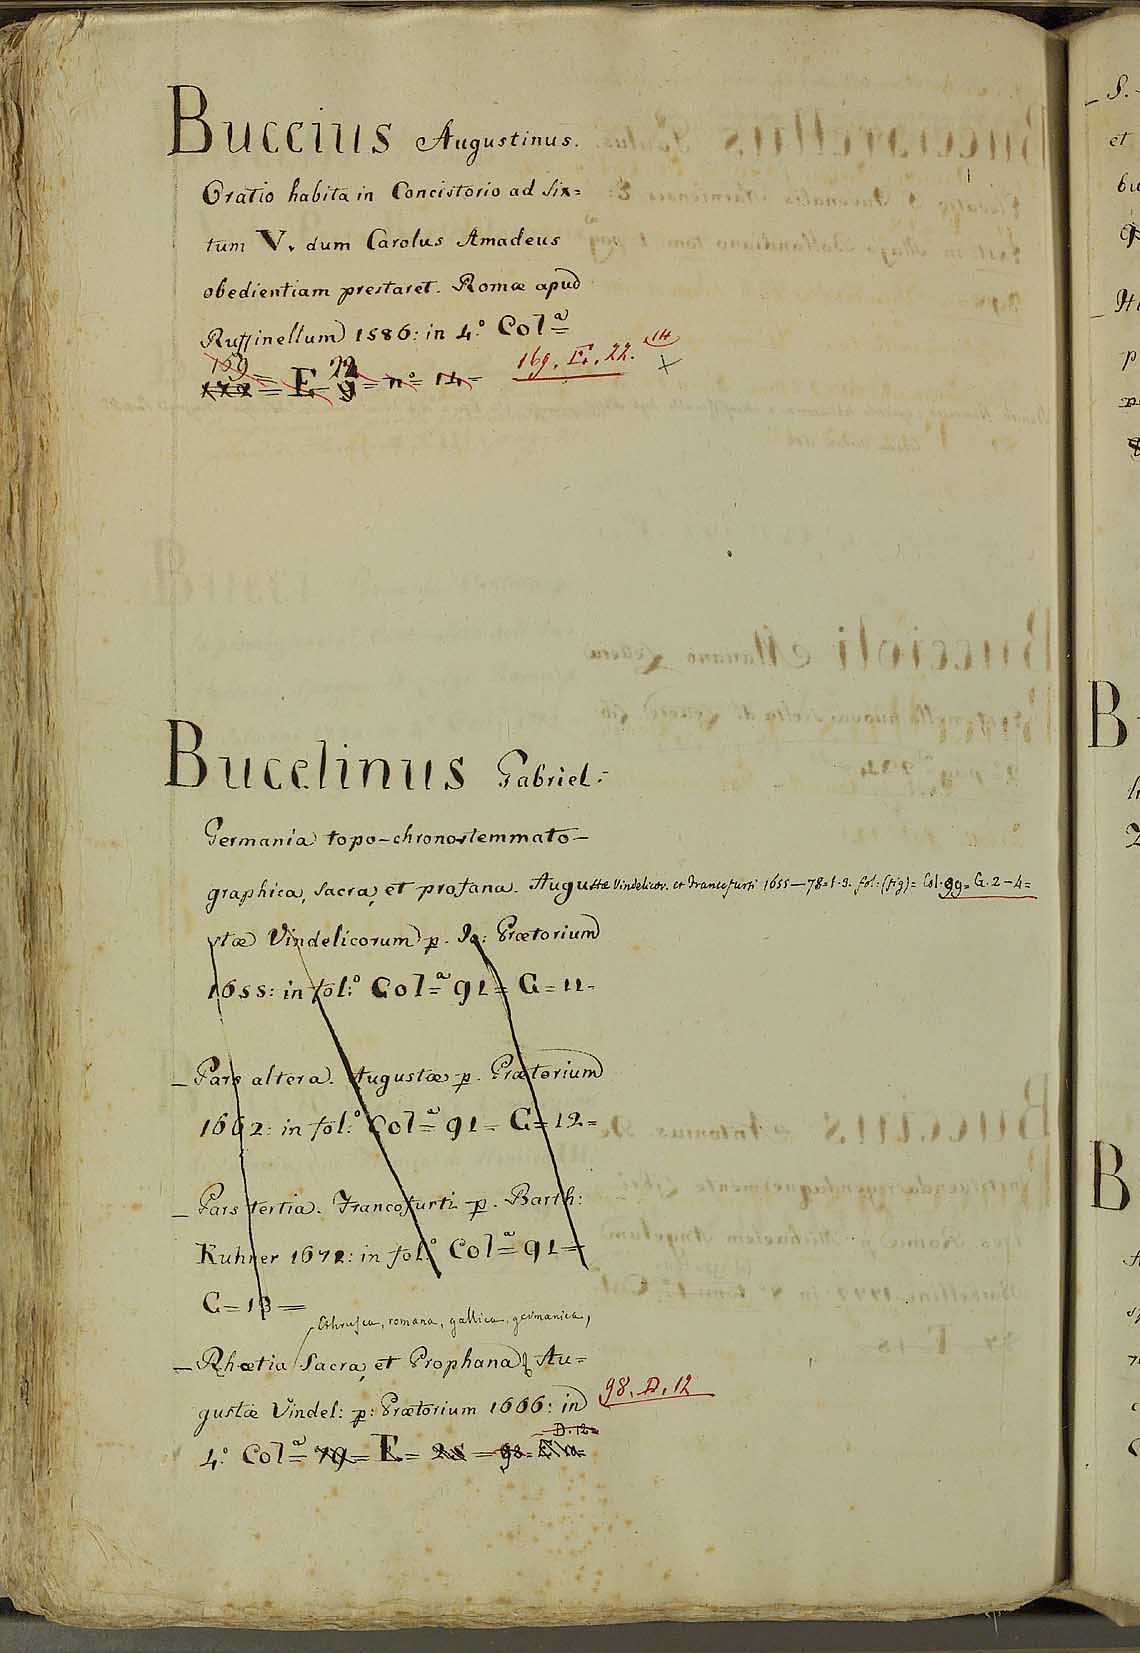 Buccius Augustinus.
Oratio habita in Concistorio ad Six=
tum V. dum Carolus Amadeus
obedientiam prestaret. Romæ apud
Ruffinellum 1586: in 4.° Col=ª
169 22 169. E. 22. 14
= E = 9 = n° = 14 = X
Bucelinus Gabriel:
Germania topo-chronostemmato-
graphica, sacra, et profana. Augustæ Vindelicor. et Francofurti 1655-78=t.3. fol: (fig)= Col. 99= G. 2-4=
stæ Vindelicorum p. Jo: Prætorium
1655: in fol:° Col=ª 91= G = 11-
_ Pars altera. Augustæ p. Prætorium
1662: in fol:° Col=ª 91= G=12=
_ Pars tertia. Francofurti p. Barth:
Kuhner 1672: in fol:° Col=ª 91=
G=13=
Ethrusca, romana, gallica, germanica,
_ Rhœtia Sacra, et Prophana, Au=
gustæ Vindel: p: Prætorium 1666: in 98. D. 12
D. 12=
4.° Col=ª 79= E = 25 = 98=